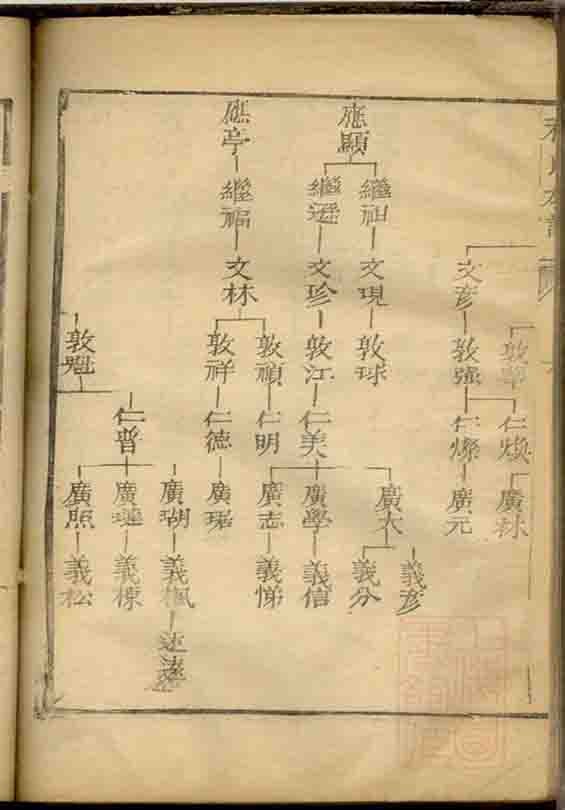 應顯
應亭
繼祖
繼遜
繼福
文彥
文現
文珍
文林
敦強
敦球
敦江
敦禎
敦祥
敦魁
仁煥
仁燦
仁美
仁明
仁德
仁普
廣林
廣元
廣大
廣學
廣志
廣瑞
廣瑚
廣璉
廣照
義彥
義分
義信
義悌
義楓
義棟
義松